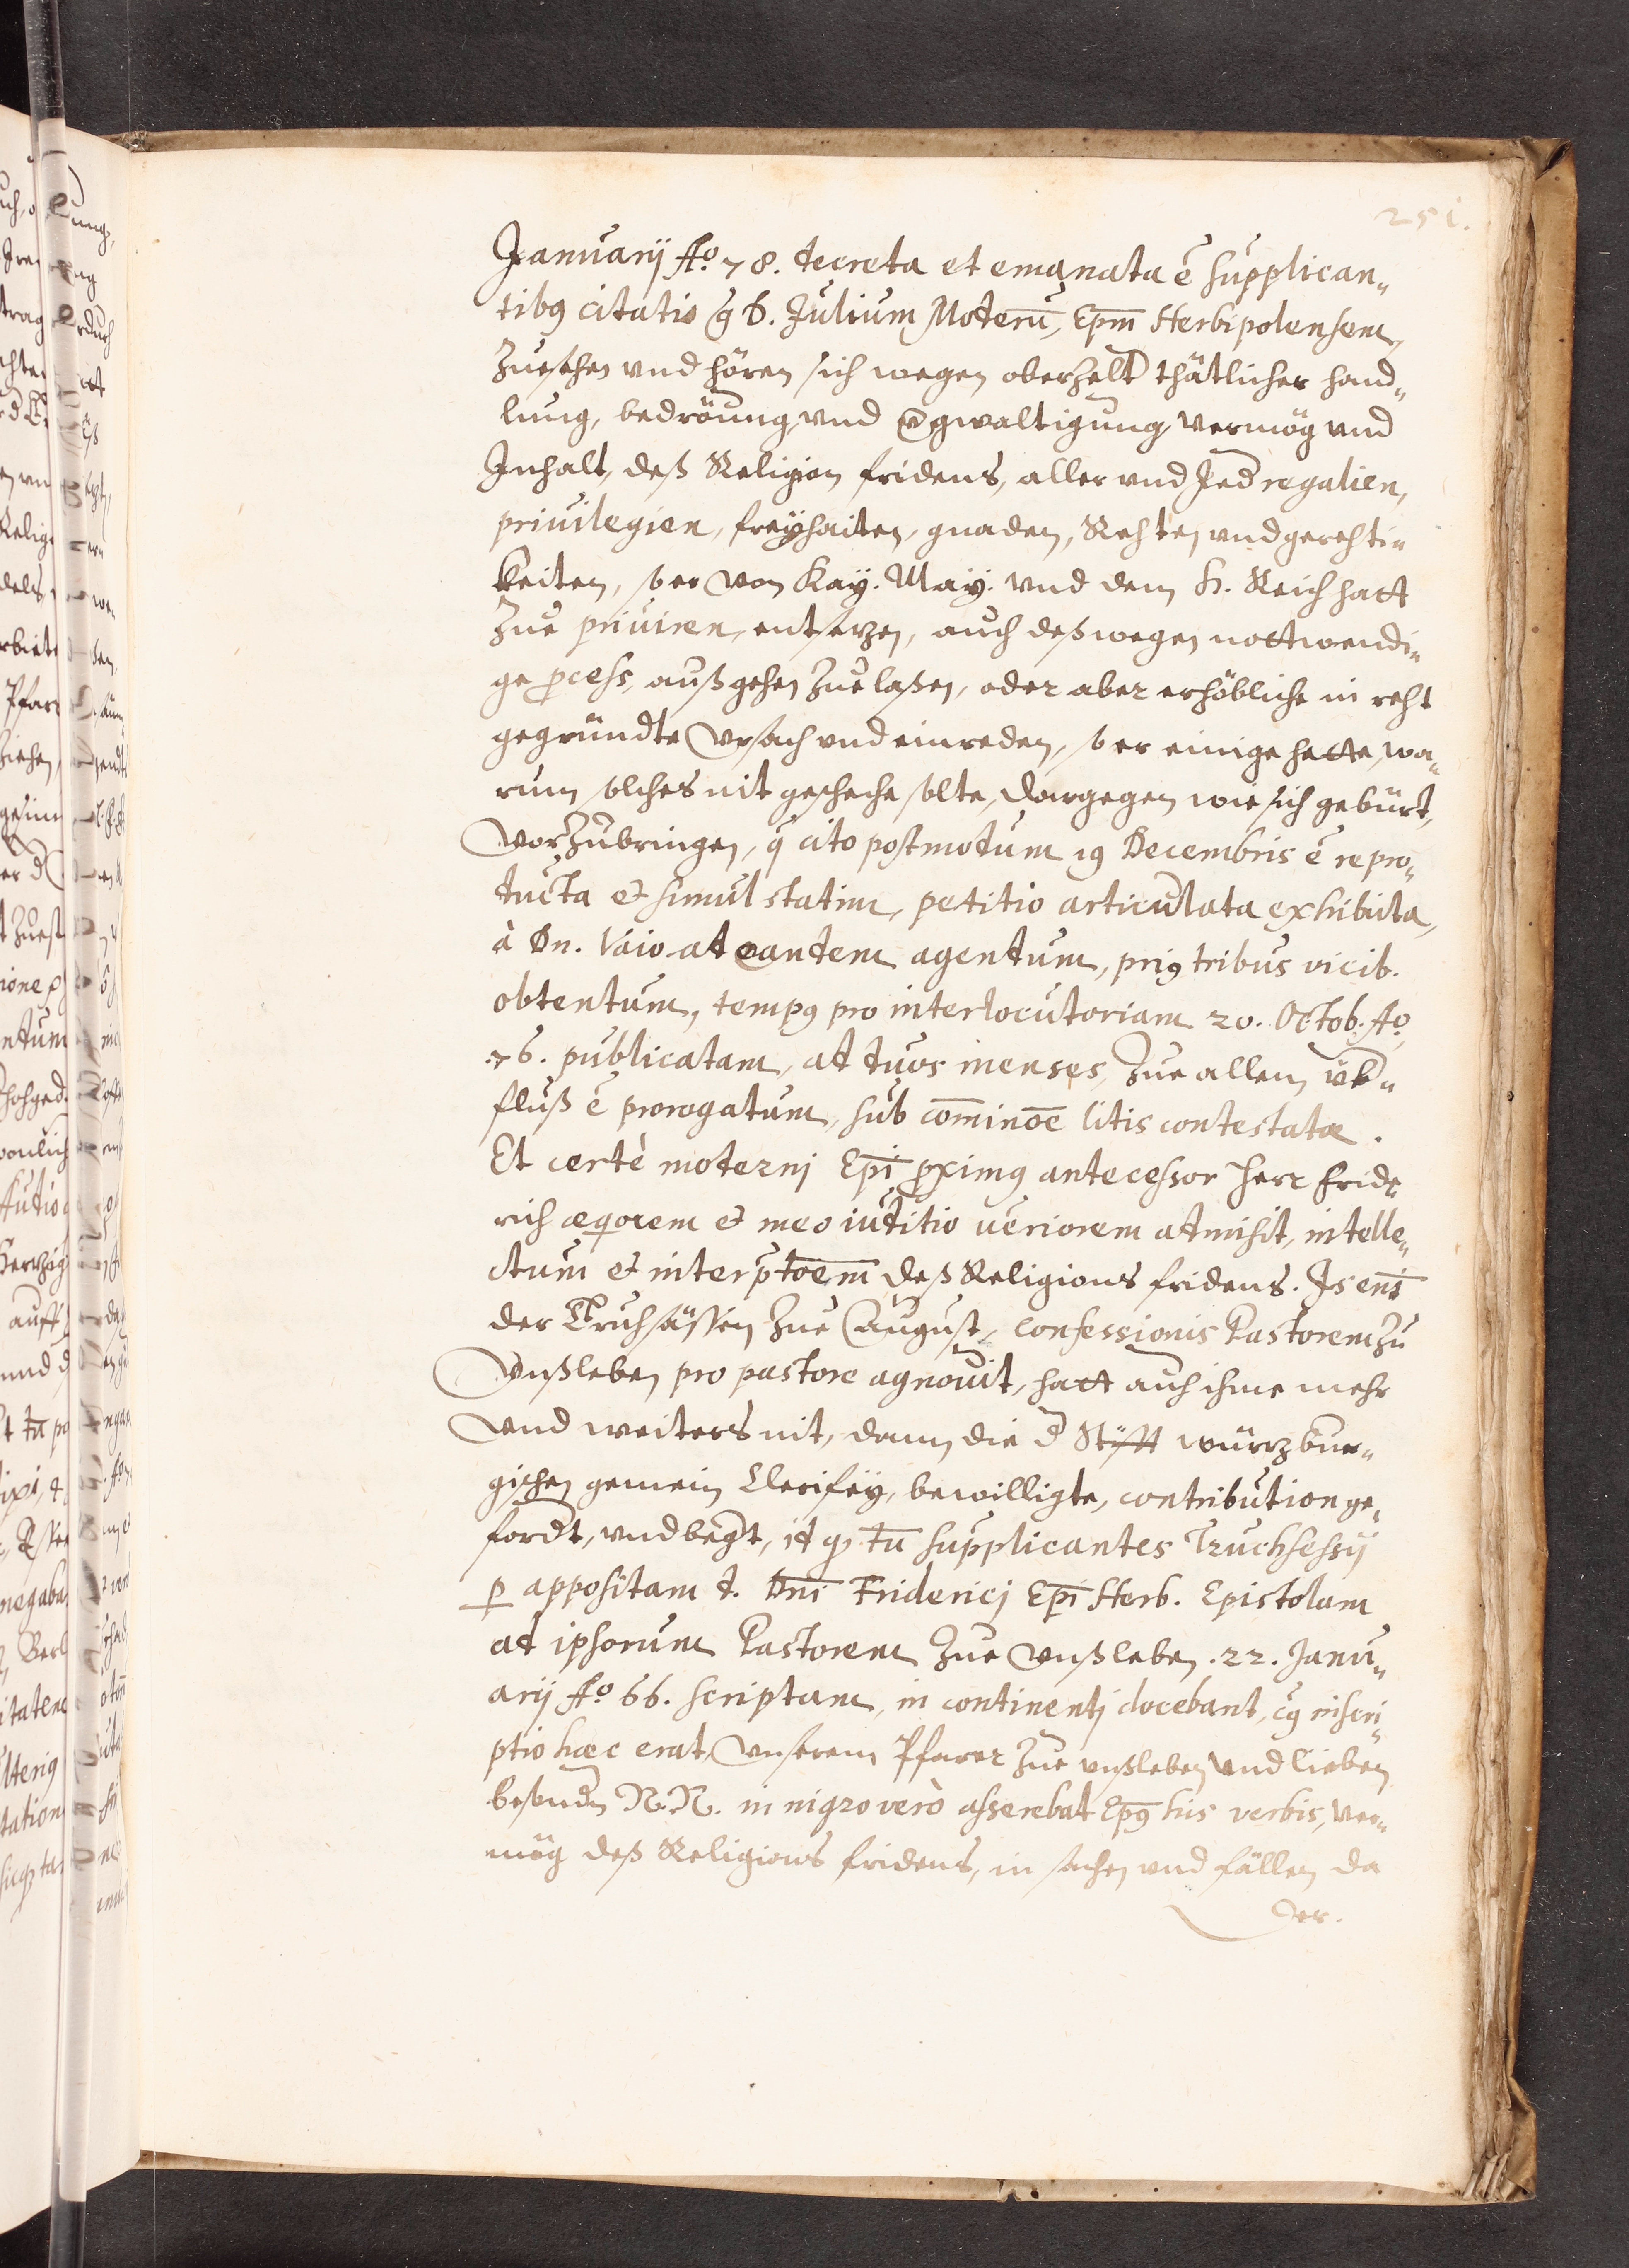 251.
Januarij Ao. 78. decreta et emanata ē supplican„
tibꝰ citatio ꝗ D. Julium Modernū, Epm̄ Herbipolensem,
Zuesehen vnd hören sich wegen oberzelt thätlicher hand„
lung, bedröung, vnd vgwaltigung, vermög vnd
Inhalt, deß Religion fridens, aller vnd Jed regalien,
priuilegien, freyhaiten, gnaden, Rechten vnd gerechti„
keiten, so er von Kay. May. vnd dem H. Reich hatt
zue priuiren, entsetzen, auch deßwegen nottwendi„
ge ꝓcess, außgehen Zuelaßen, oder aber erhöbliche in recht
gegründte Vrsach vnd einreden, so er einige hette, wa„
rum solches nit gescheche solte, dargegen wie sich gebürt,
vorzubringen, q̄ cito postmodum 19 Decembris ē repro„
ducta et simul statim, petitio articulata exhibita,
à Dn. Vaio ad eandem agendum, priꝰ tribus vicib.
obtentum, tempꝰ pro interlocutoriam 20. Octob. Ao.
76. publicatam, ad duos menses, Zue allem vb„
fluß ē prorogatum, sub com̄inoē litis contestatæ.
Et certè modernj Epī ꝓximꝰ antecessor Herr Fride„
rich æquiorem et meo iuditio veriorem admisit, intelle„
ctum et interp̄toēm deß Religions fridens. Is enī
der Truchsässen Zue August, confessionis Pastorem zu
Vnßleben pro pastore agnouit, hatt auch ihme mehr
vnd weiters nit, dann die d Stifft würzbur„
gischen gemein Clerisey, bewilligte, contribution ge„
fordt, vnd begt, id qꝫ tū supplicantes Truchsessij
ꝑ appositam d. Dnī Friderici Epī Herb. Epistolam
ad ipsorum Pastorem Zue Vnßleben. 22. Janu„
arij Ao. 66. scriptam, in continentj docebant, cꝰ inscri„
ptio hæc erat, Vnserem Pfarer Zue vnßleben vnd lieben
besundn N. N. in nigro verò asserebat Epꝰ his verbis, ver„
mög deß Religions fridens, in sachen vnd fällen da
der.